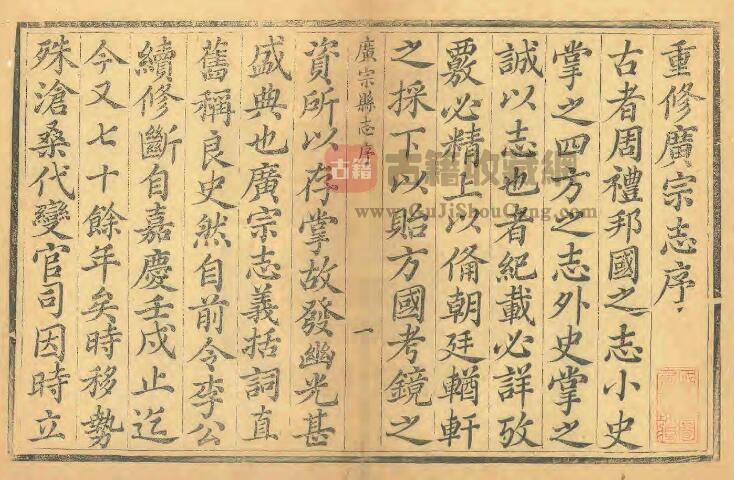 重修廣宗志序
古者周禮邦國之志小史
掌之四方之志外史掌之
誠以志也者紀載必詳攷
覈必精上以俻朝廷輶軒
之採下以貽方國考鏡之
廣宗縣志序
一
資所以存掌故發幽光甚
盛典也廣宗志義括詞直
舊稱良史然自前令李公
續修斷自嘉慶壬戍止迄
今又七十餘年矣時移勢
殊滄桑代變官司因時立
古籍
古籍收藏網
www.GuJiShouCang.com